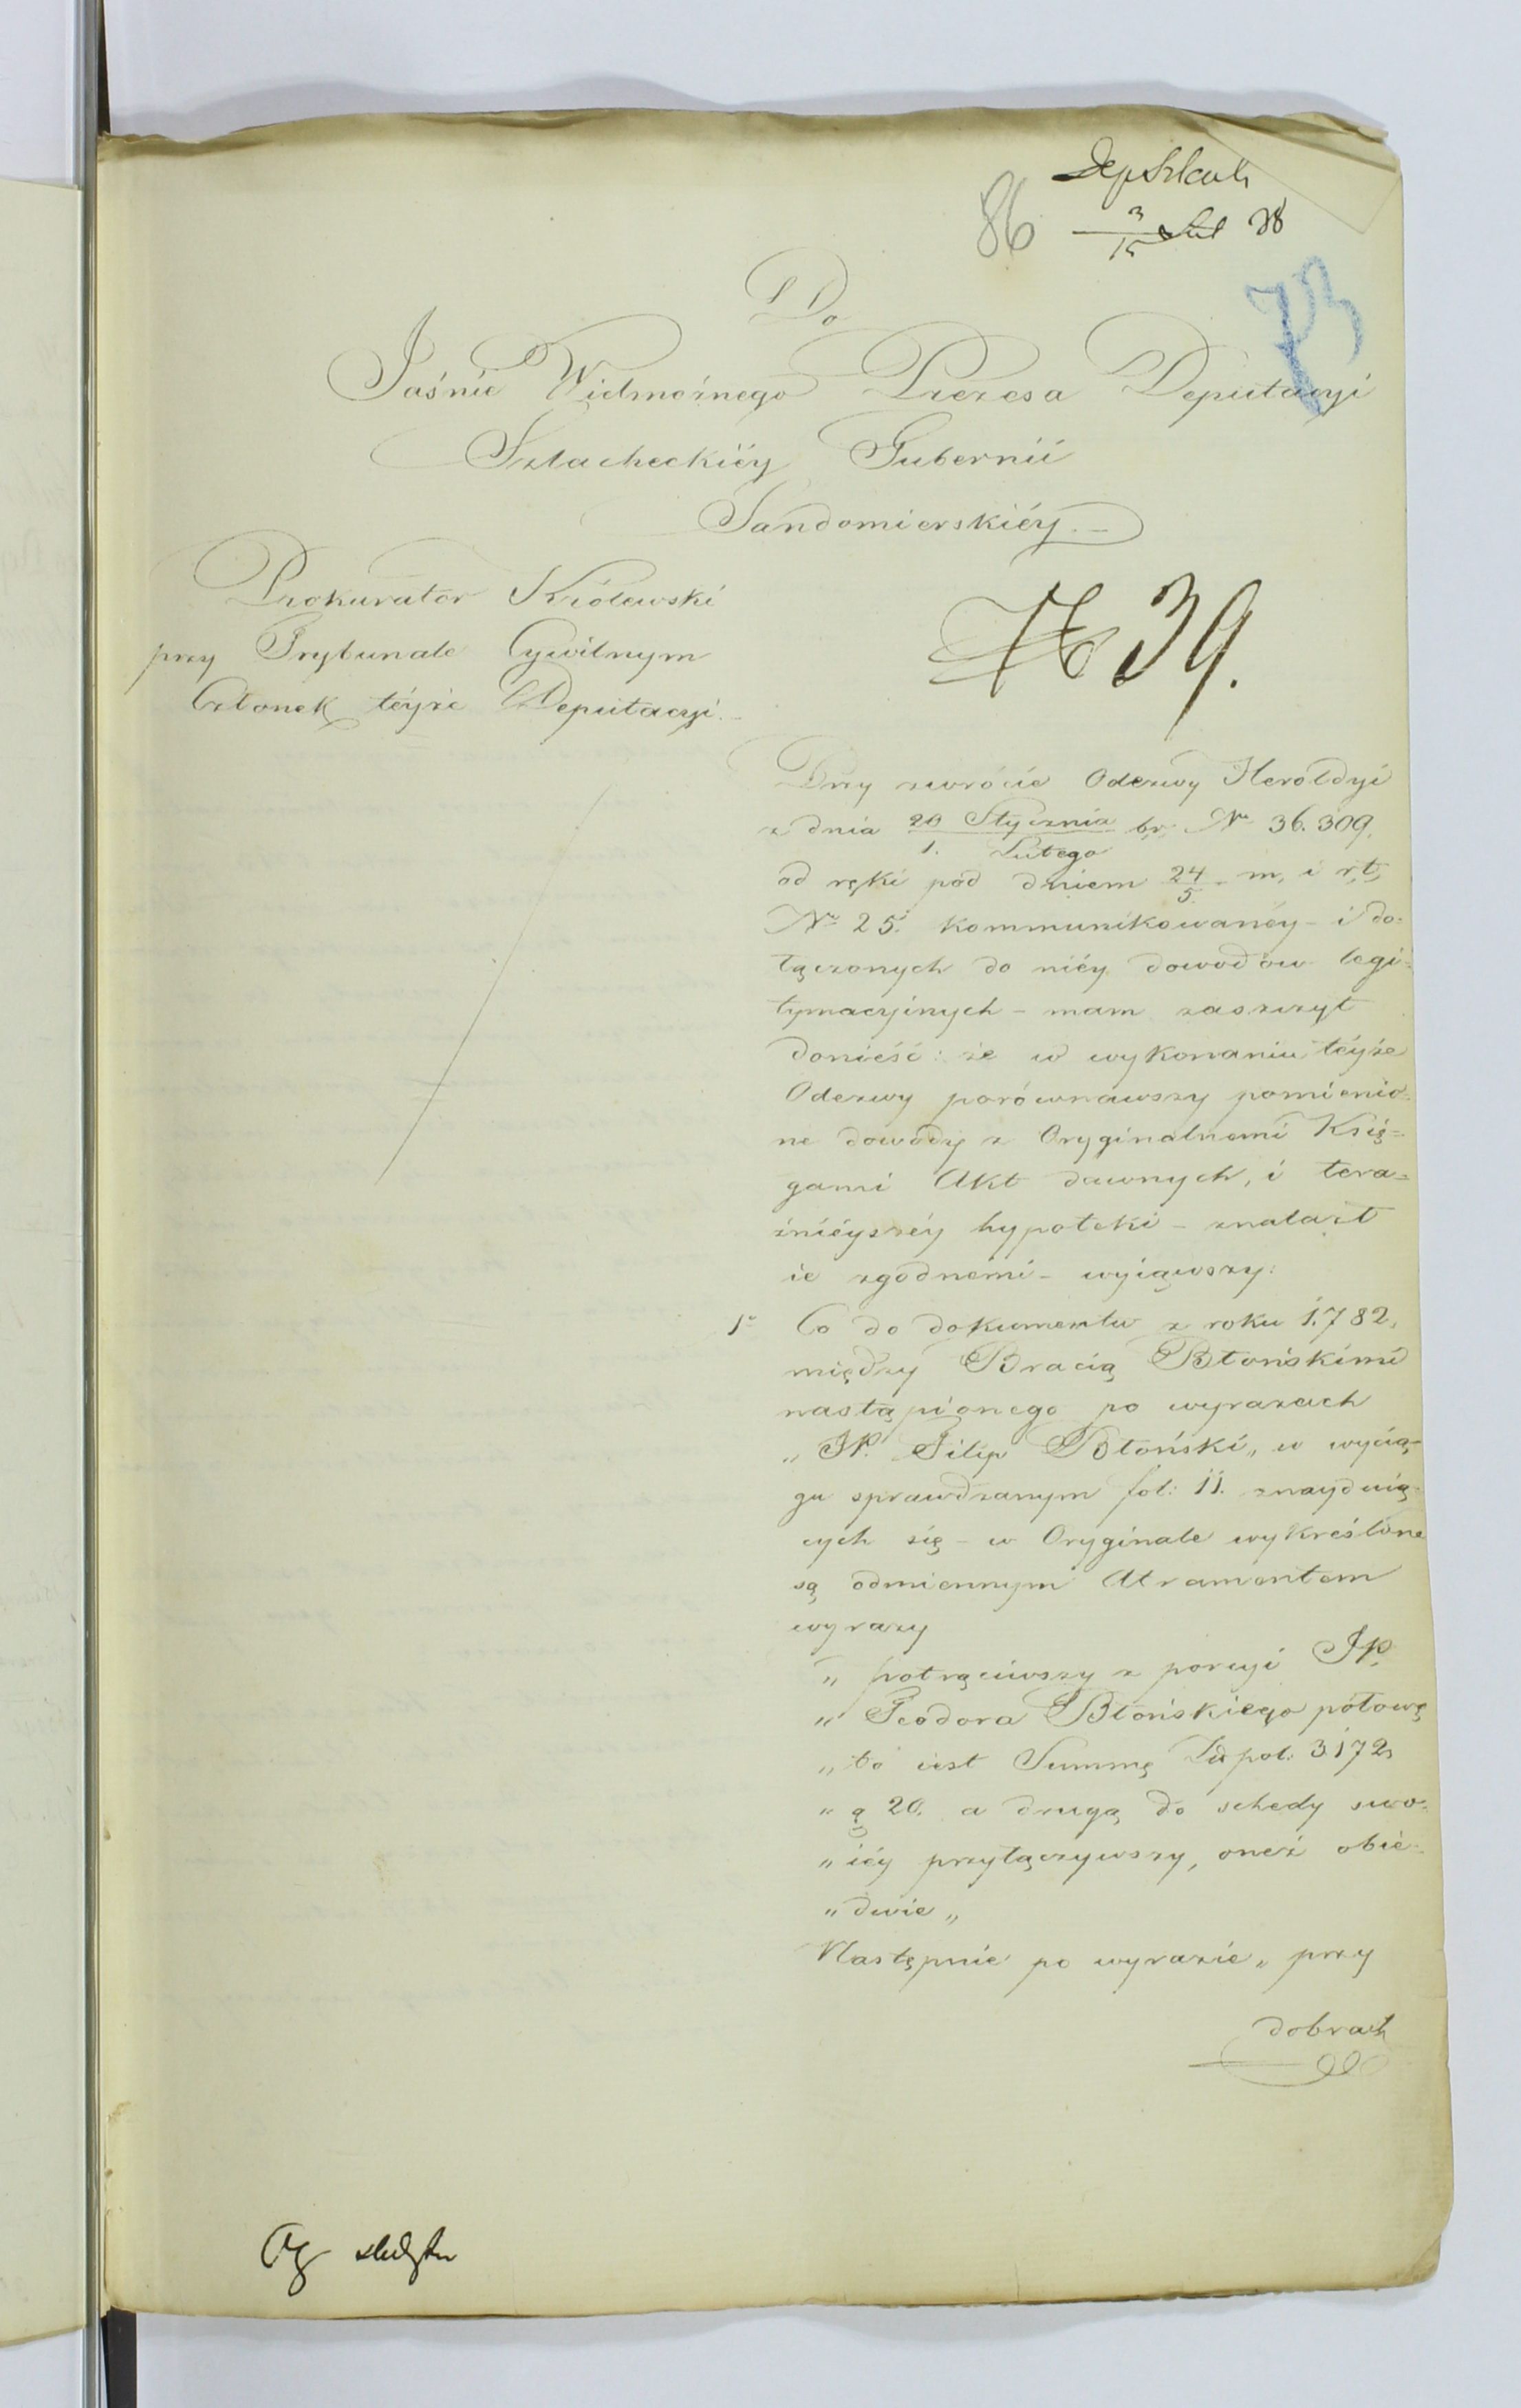 86
73
Do
Jaśnie Wielmożnego Prezesa Deputacyi
Szlacheckiéy Gubernii
Sandomierskiéy.
Prokurator Królewski
przy Trybunale Cywilnym
Członek téyże Deputacyi.
№ 39.
Przy zwrócie Odezwy Heroldyi
z dnia 20 Stycznia / 1. Lutego br. Nr 36.309.
od ręki pod dniem 24/5. m, i r,t,
Nr 25. kommunikowanéy - i do=
łączonych do niéy dowodów legi=
tymacyinych - mam zaszczyt
donieść: że w wykonaniu téyże
Odezwy porównawszy pomienio=
ne dowody z Oryginalnemi Xię=
gami Akt dawnych, i tera=
źniéyszéy hypoteki - znalazł
ie zgodnemi - wyiąwszy:
1o Co do dokumentu z roku 1782,
między Bracią Błońskimi
nastąpionego po wyrazach
„JP. Filip Błoński„ w wycią=
gu sprawdzanym fol: 11. znayduią=
cych się - w Oryginale wykreślone
są odmiennym Atramentem
wyrazy
„ potrąciwszy z porcyi JP.
„ Teodora Błońskiego połowę
„ to iest Summę Złł pol: 3172,
„ g 20. a drugą do schedy swo=
„ iéy przyłączywszy, oneż obie=
„ dwie „
Następnie po wyrazie „ przy
dobrach